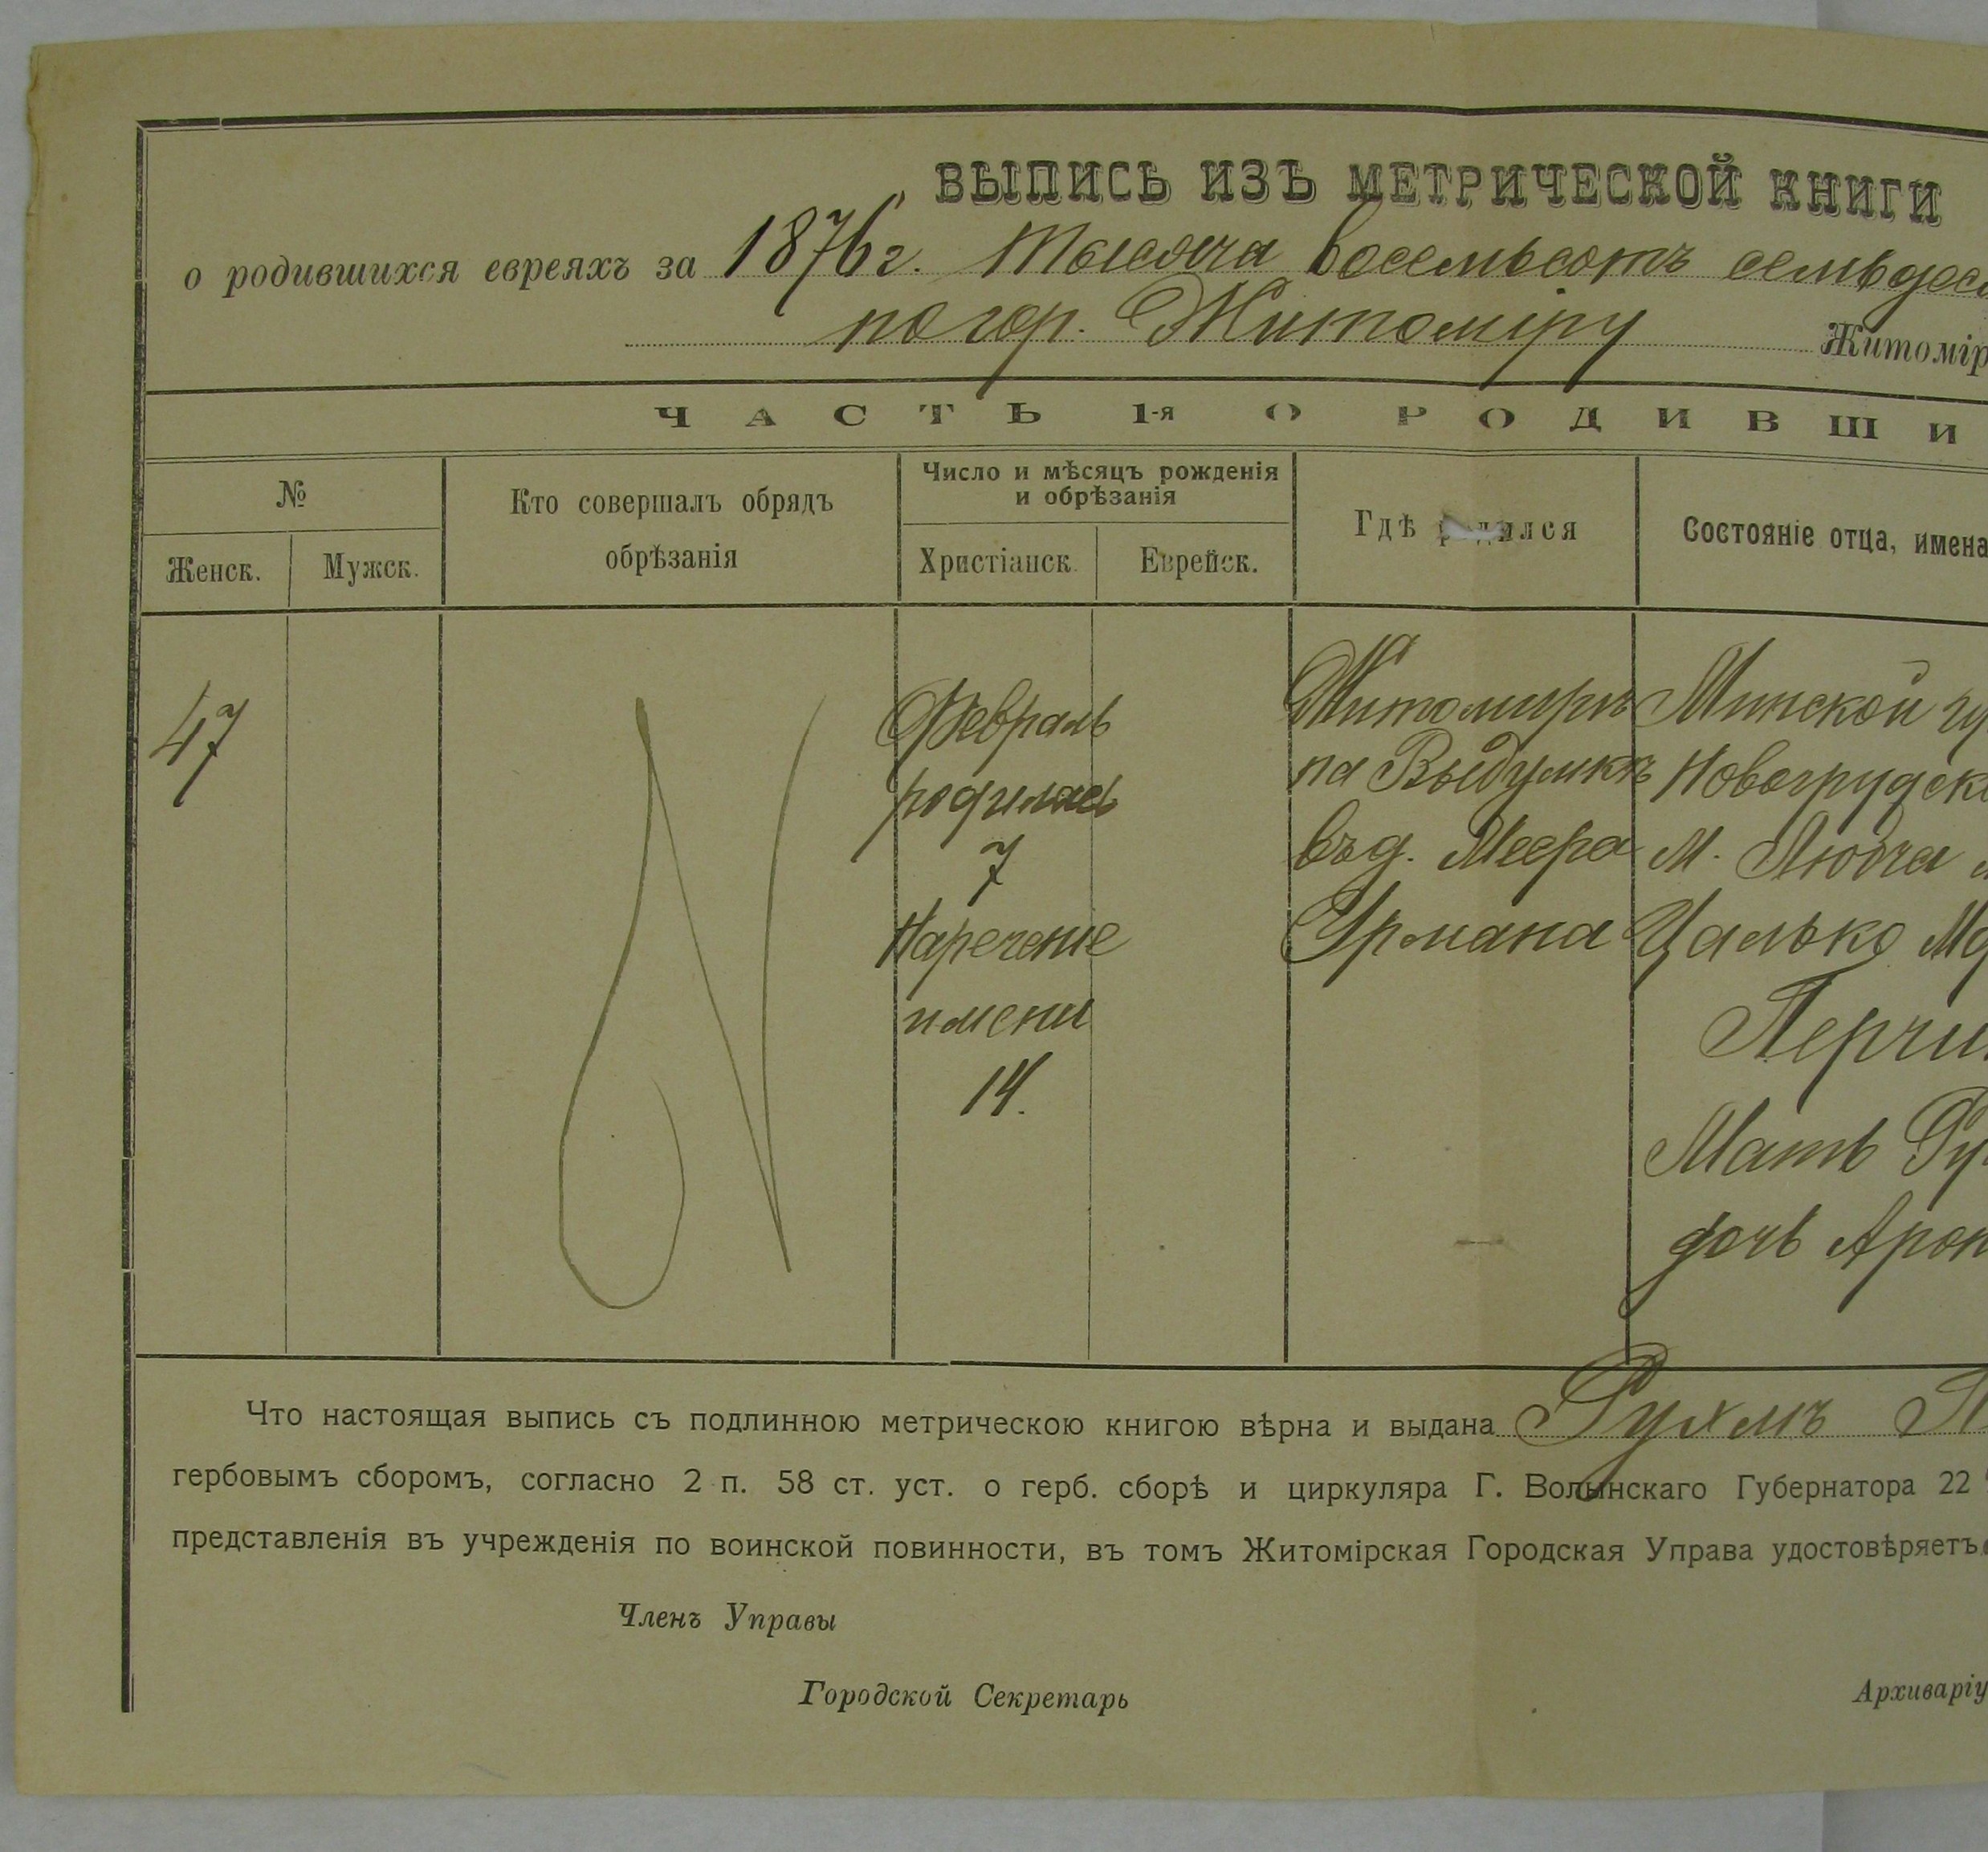 ВЫПИСЬ ИЗЪ МЕТРИЧЕСКОЙ КНИГИ
о родившихся евреяхъ за 1876 г. Тысяча восемьсотъ семьдес
по гор. Житоміру Житомір
ЧАСТЬ 1-я О РОДИВШИ
№
Женск. Мужск.
Кто совершалъ обрядъ
обрѣзанія
Число и мѣсяцъ рожденія
и обрѣзанія
Христіанск. Еврейск.
Гдѣ родился
Состояніе отца, имена
47
Февраль
родилась
7
Наречение
имени
14.
Житомирѣ
на Выдумкѣ
въ д. Меера
Урмана
Минской гу
Новогрудск
М. Любча
Цалько
Перчи
Мать
дочь Арон
Что настоящая выпись съ подлинною метрическою книгою вѣрна и выдана
гербовымъ сборомъ, согласно 2 п. 58 ст. уст. о герб. сборѣ и циркуляра Г. Волынскаго Губернатора 22
представленія въ учрежденія по воинской повинности, въ томъ Житомірская Городская Управа удостовѣряетъ.
Членъ Управы
Городской Секретарь
Архиваріу